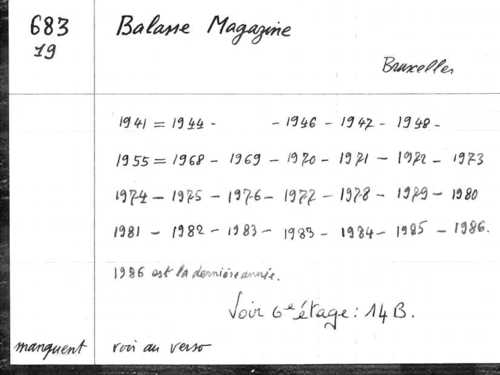 683 Balasse Magazine
19
Bruxelles
1941 = 1944 - - 1946 - 1947 - 1948 -
1955 = 1968 - 1969 - 1970 - 1971 - 1972 - 1973
1974 - 1975 - 1976 - 1977 - 1978 - 1979 - 1980
1981 - 1982 - 1983 - 1983 - 1984 - 1985 - 1986.
1986 est la dernière année.
Voir 6e étage : 14 B.
manquent voir au verso